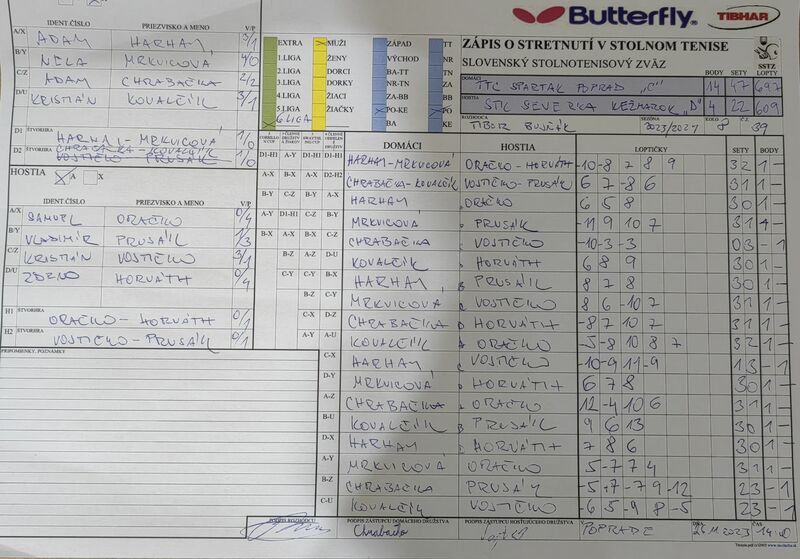 Butterfly
TIBHAR
ZÁPIS O STRETNUTÍ V STOLNOM TENISE
SLOVENSKÝ STOLNOTENISOVÝ ZVÄZ
SSTZ
BODY SETY LOPTY
DOMÁCI TTC SPARTAK POPRAD "C" 14 47 697
HOSTIA STK SEVERKA KEŽMAROK "D" 4 22 609
ROZHODCA TIBOR SEZÓNA 2023/2024 KOLO 8 Č. 39
EXTRA MUŽI ZÁPAD TT
1.LIGA ŽENY VÝCHOD NR
2.LIGA DORCI BA-TT TN
3.LIGA DORKY NR-TN ZA
4.LIGA ŽIACI ZA-BB BB
5.LIGA ŽIAČKY PO-KE PO
6 LIGA BA KE
IDENT.ČÍSLO PRIEZVISKO A MENO V/P
A/X ADAM HARHAJ 3/1
B/Y NELA MRKVICOVÁ 4/0
C/Z ADAM CHRABAČKA 2/2
D/U KRISTIÁN KOVALČÍK 3/1
D1 ŠTVORHRA HARHAJ - MRKVICOVÁ 1/0
D2 ŠTVORHRA CHRABAČKA - KOVALČÍK 1/0
HOSTIA A X
IDENT.ČÍSLO PRIEZVISKO A MENO V/P
A/X SAMUEL ORAČKO 0/4
B/Y VLADIMÍR PRUSÁIK 1/3
C/Z KRISTIÁN VOJTIČKO 3/1
D/U HORVÁTH 0/4
H1 ŠTVORHRA ORAČKO - HORVÁTH 0/1
H2 ŠTVORHRA VOJTIČKO - PRUSÁIK 0/1
PRIPOMIENKY, POZNÁMKY
DOMÁCI HOSTIA LOPTIČKY SETY BODY
D1-H1 A-Y D1-H1 D1-H1 HARHAJ - MRKVICOVÁ ORAČKO - HORVÁTH -10 -8 7 8 9 3 2 1 -
A-X B-X A-X D2-H2 CHRABAČKA - KOVALČÍK VOJTIČKO - PRUSÁIK 6 7 -8 6 3 1 1 -
B-Y C-Z B-Y A-X HARHAJ ORAČKO 6 5 8 3 0 1 -
A-Y D1-H1 C-Z B-Y MRKVICOVÁ PRUSÁIK -11 9 10 7 3 1 1 -
B-X A-X B-X C-Z CHRABAČKA VOJTIČKO -10 -3 -3 0 3 - 1
B-Z A-Z D-U KOVALČÍK HORVÁTH 6 8 9 3 0 1 -
C-Y C-Y B-X HARHAJ PRUSÁIK 8 7 8 3 0 1 -
B-Z C-Y MRKVICOVÁ VOJTIČKO 8 6 -10 7 3 1 1 -
C-X D-Z CHRABAČKA HORVÁTH -8 7 10 7 3 1 1 -
A-Y A-U KOVALČÍK ORAČKO -5 -8 10 8 7 3 2 1 -
C-X HARHAJ VOJTIČKO -10 -9 11 -9 1 3 - 1
D-Y MRKVICOVÁ HORVÁTH 6 7 8 3 0 1 -
A-Z CHRABAČKA ORAČKO 12 -4 10 6 3 1 1 -
B-U KOVALČÍK PRUSÁIK 9 6 13 3 0 1 -
D-X HARHAJ HORVÁTH 7 8 6 3 0 1 -
A-Y MRKVICOVÁ ORAČKO 5 -7 7 4 3 1 1 -
B-Z CHRABAČKA PRUSÁIK -5 7 -7 9 -12 2 3 - 1
C-U KOVALČÍK VOJTIČKO -6 5 -9 8 -5 2 3 - 1
PODPIS ROZHODCU PODPIS ZÁSTUPCU DOMÁCEHO DRUŽSTVA PODPIS ZÁSTUPCU HOSŤUJÚCEHO DRUŽSTVA V POPRADE DŇA 2023 ČAS
Chrabačka